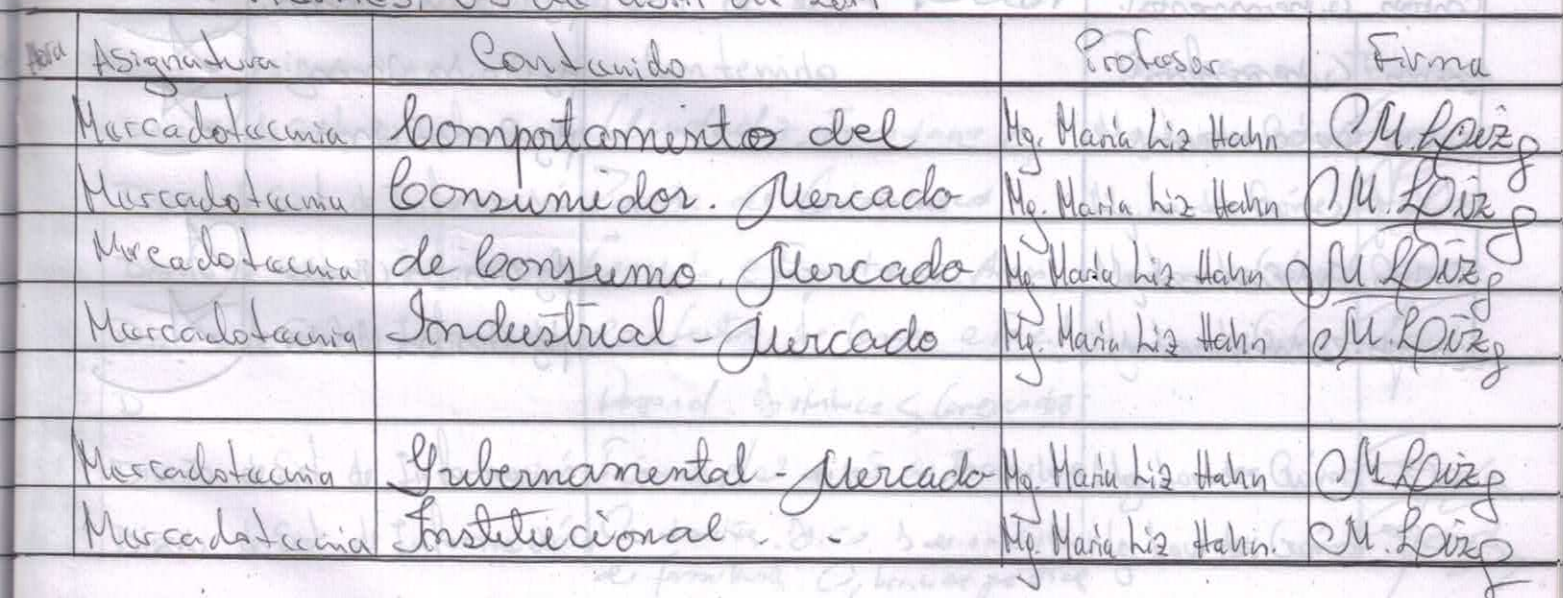 Hora Asignatura Contenido Profesor Firma
Mercadotecnia Comportamiento del Mg. Maria Liz Hahn
Mercadotecnia Consumidor. Mercado Mg. Maria Liz Hahn
Mercadotecnia de Consumo. Mercado Mg. Maria Liz Hahn
Mercadotecnia Industrial - Mercado Mg. Maria Liz Hahn
Mercadotecnia Gubernamental - Mercado Mg. Maria Liz Hahn
Mercadotecnia Institucional. - Mg. Maria Liz Hahn.